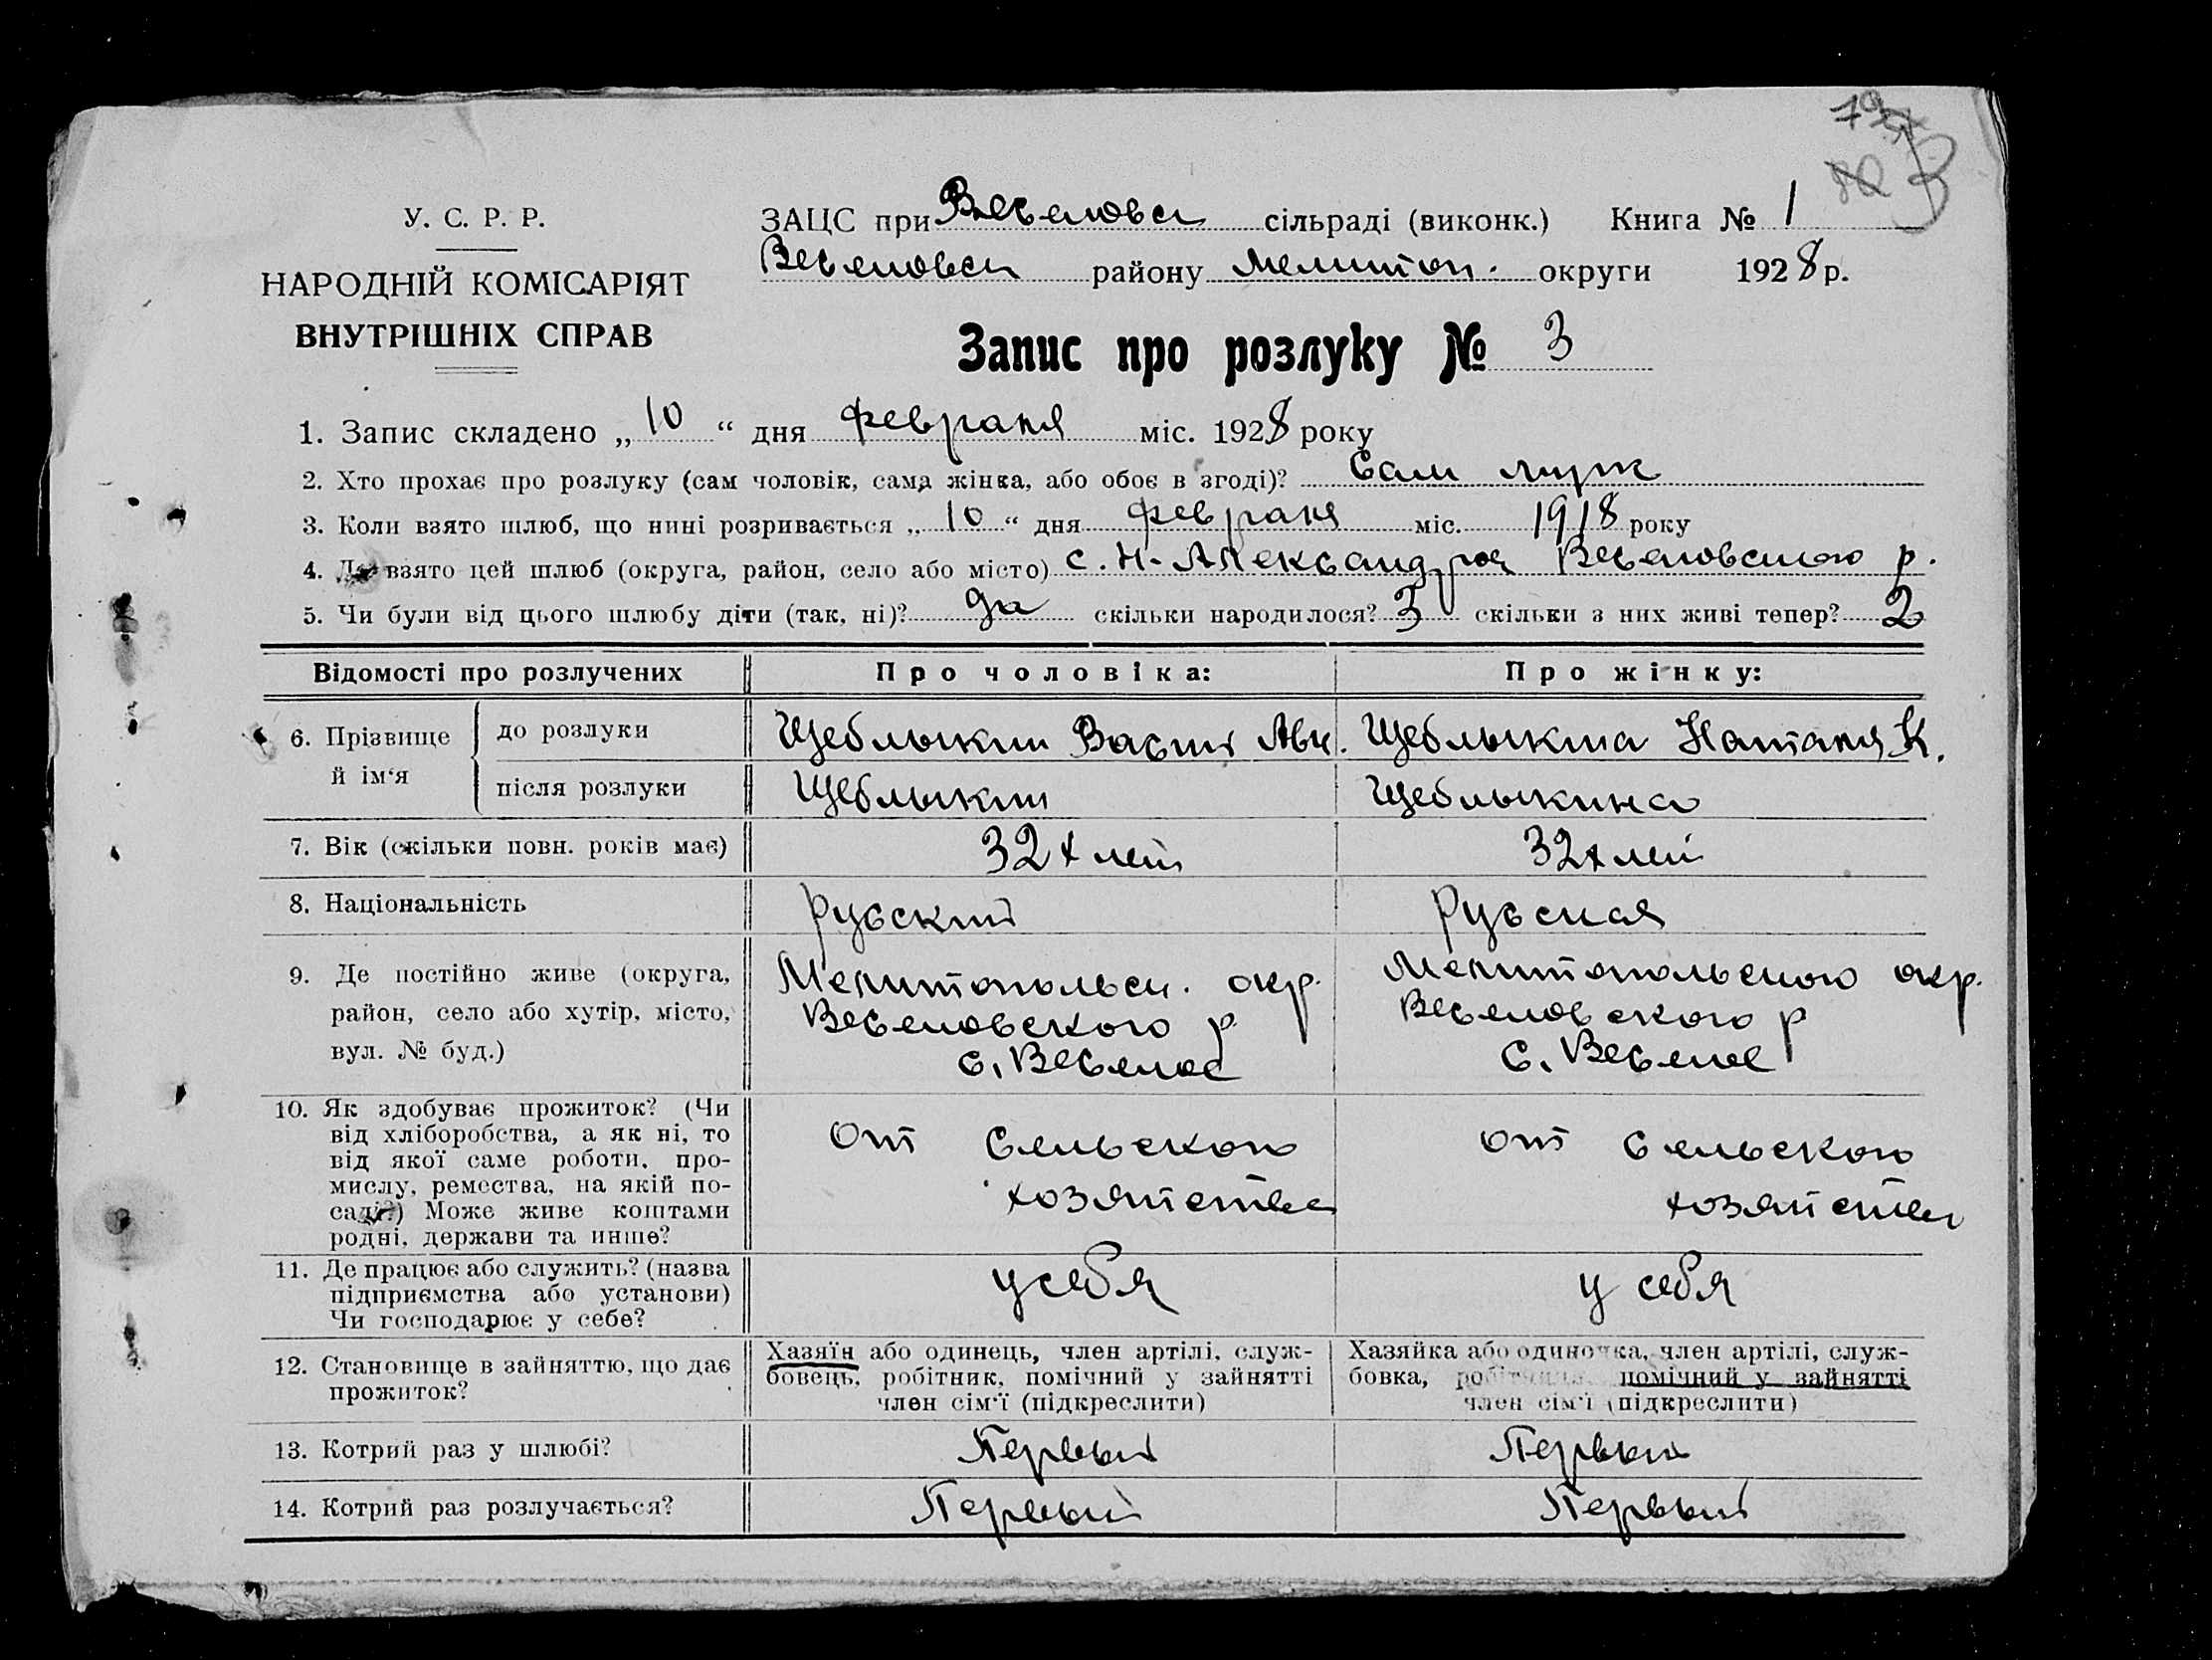 У. С. Р. Р.
НАРОДНІЙ КОМІСАРІЯТ
ВНУТРІШНІХ СПРАВ
ЗАЦС при Веселовск сільраді (виконк.) Книга № 1
Веселовск району Мелитоп. округи 1928 р.
Запис про розлуку № 3
1. Запис складено „ 10 “ дня февраля міс. 1928 року
2. Хто прохає про розлуку (сам чоловік, сама жінка, або обоє в згоді)? Сам муж
3. Коли взято шлюб, що нині розривається „ 10 “ дня февраля міс. 1918 року
4. Де взято цей шлюб (округа, район, село або місто) с. Н-Александров Веселовского р.
5. Чи були від цього шлюбу діти (так, ні)? да скільки народилося? 3 скільки з них живі тепер? 2
Відомості про розлучених Про чоловіка: Про жінку:
6. Прізвище й ім‘я
до розлуки Щеблыкин Васил Авк. Щеблыкина Наталя К.
після розлуки Щеблыкин Щеблыкина
7. Вік (скільки повн. років має) 32 х лет 32 х лет
8. Національність русский русская
9. Де постійно живе (округа, район, село або хутір, місто, вул. № буд.)
Мелитопольск. окр. Мелитопольского окр.
Веселовского р Веселовского р
с. Веселое с. Веселое
10. Як здобуває прожиток? (Чи від хліборобства, а як ні, то від якої саме роботи, промислу, ремества, на якій посаді?) Може живе коштами родні, держави та инше?
От Сельского от Сельского
хозяйства хозяйства
11. Де працює або служить? (назва підприємства або установи) Чи господарює у себе?
у себя у себя
12. Становище в зайняттю, що дає прожиток?
Хазяїн або одинець, член артілі, службовець, робітник, помічний у зайнятті член сім‘ї (підкреслити)
Хазяйка або одиночка, член артілі, службовка, робітниця помічний у зайнятті член сім‘ї (підкреслити)
13. Котрий раз у шлюбі? Первый Первый
14. Котрий раз розлучається? Первый Первый